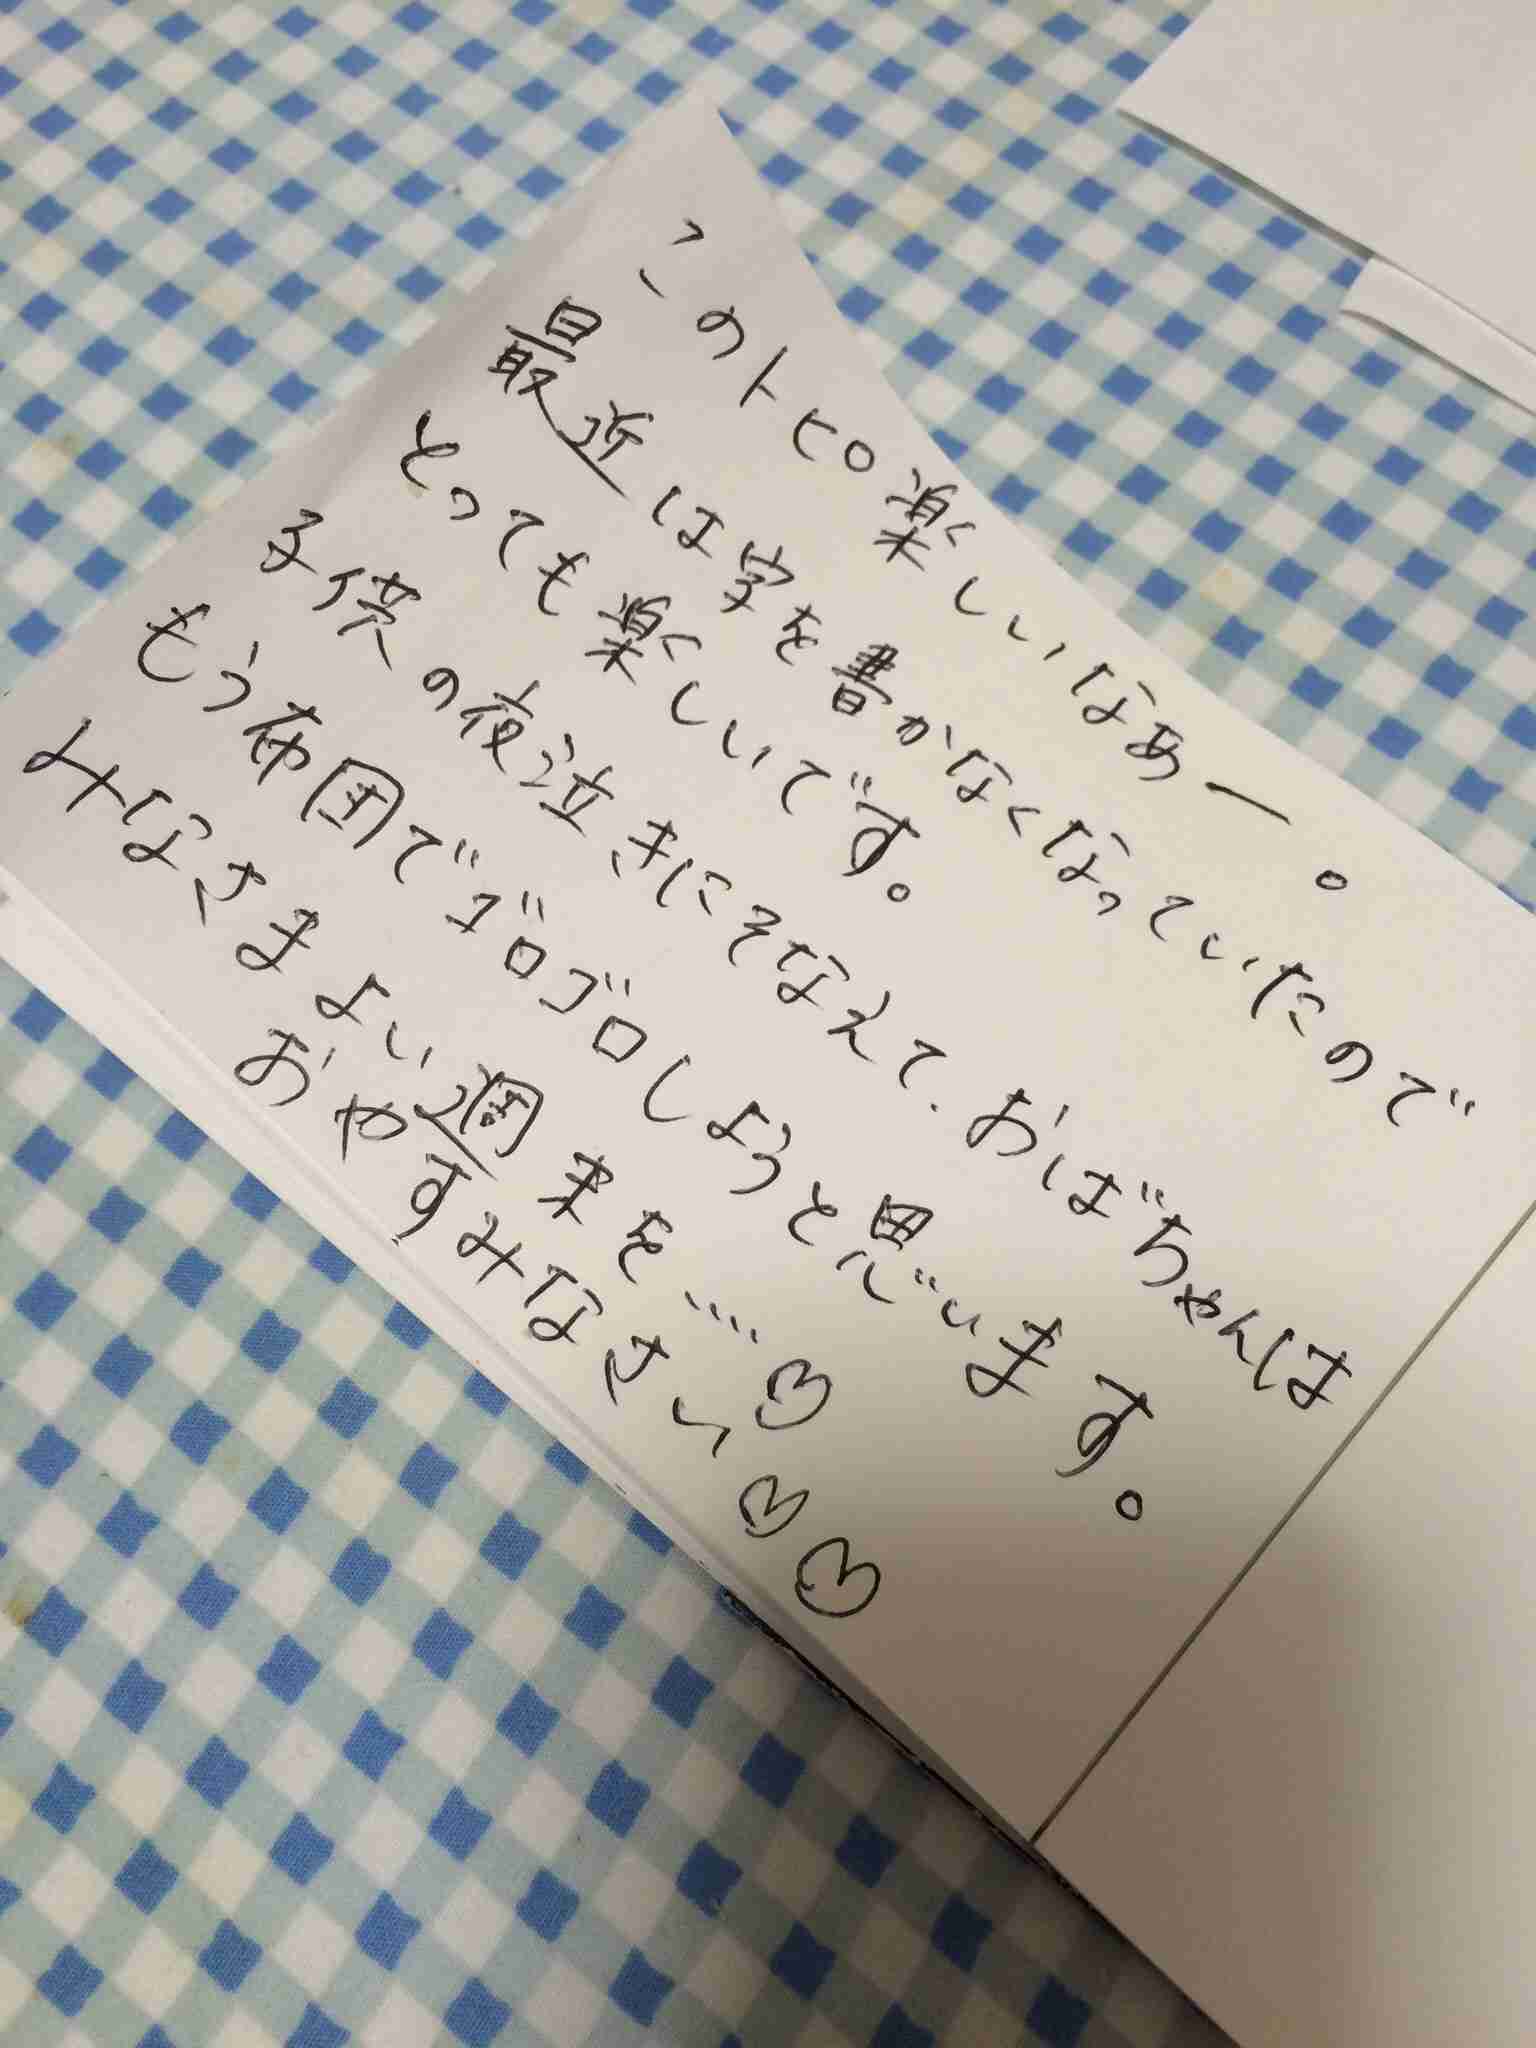 このトピ楽しいなあー。
最近は字を書かなくなっていたので
とっても楽しいです。
子供の夜泣きにそなえて、おばちゃんは
もう布団でゴロゴロしようと思います。
みなさまよい週末を…♡
おやすみなさい♡♡